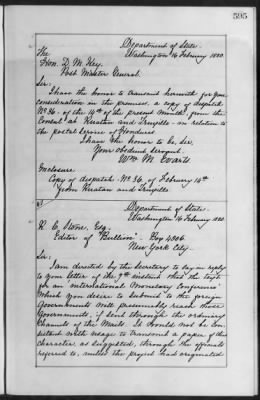 595
Department of State.
Washington 16 February 1880.
The
Hon. D. M. Key,
Post Master General.
Sir:
I have the honor to transmit herewith for your
consideration in the premises, a copy of despatch
No. 36, of the 14th of the present month, from the
Consul at Ruatan and Truxillo in relation to
the postal service of Honduras.
I have the honor to be, Sir,
Your obedient servant,
Wm M. Evarts
Enclosure
Copy of despatch No. 36, of February 14th
from Ruatan and Truxillo
Department of State.
Washington 16 February 1880.
Esq.
Editor of "Bullion" - Box 4306
New York City.
Sir:
I am directed by the Secretary to say in reply
to your letter of the instant that the
for an international Monetary Conference
which you desire to submit to the foreign
Governments will presumably reach those
Governments, if sent through the ordinary
channels of the Mails. It would not be con-
sistent with usage to transmit a paper of this
character as suggested, through the officials
referred to, unless the project had originated